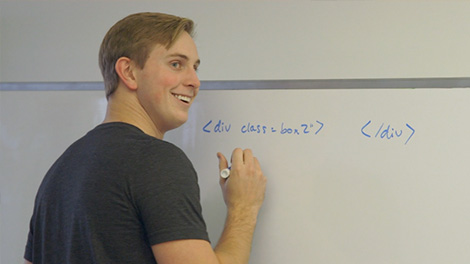 <div class=box2"> </div>